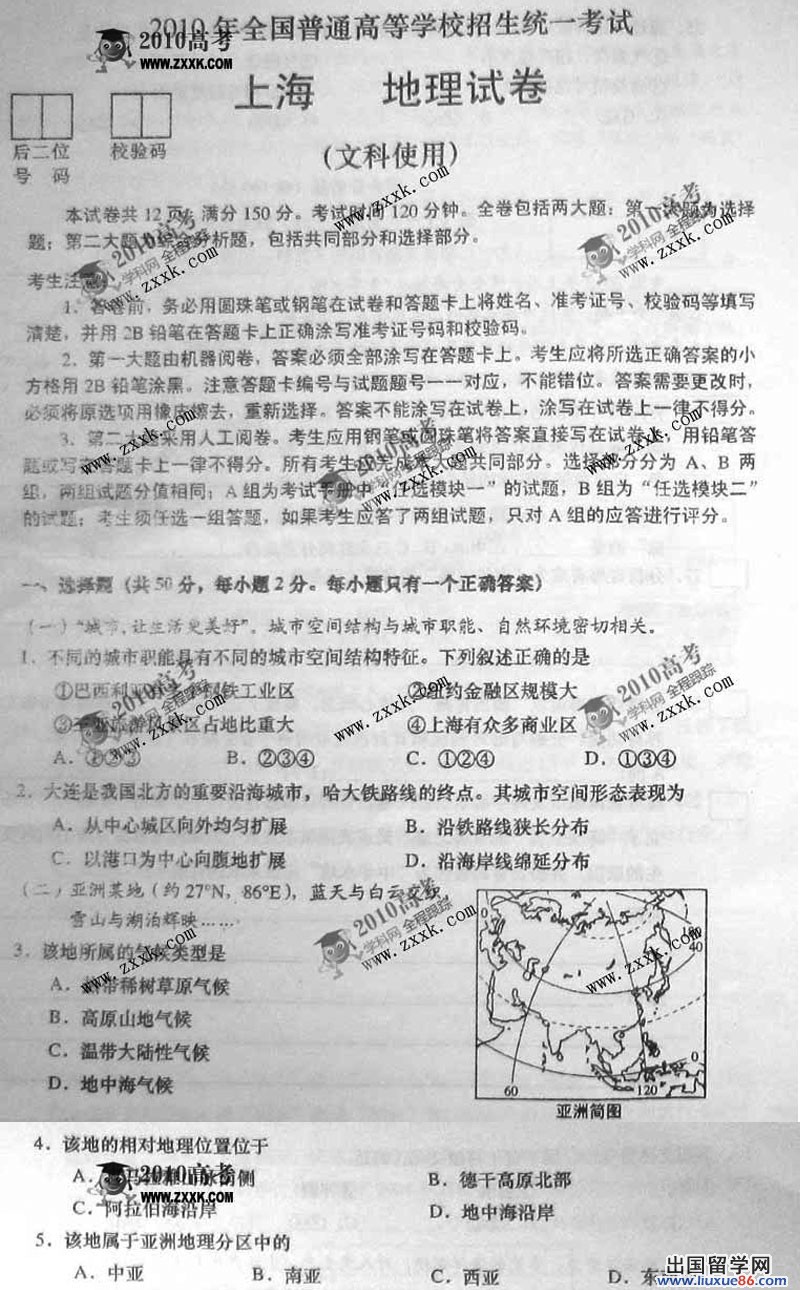 2010年全国普通高等学校招生统一考试
2010高考
WWW.ZXXK.COM
上海 地理试卷
后二位
号 码
校验码
(文科使用)
本试卷共12页,满分150分。考试时间120分钟。全卷包括两大题:第一大题为选择
题;第二大题为综合分析题,包括共同部分和选择部分。
考生注意:
1.答卷前,务必用圆珠笔或钢笔在试卷和答题卡上将姓名、准考证号、校验码等填写
清楚,并用2B铅笔在答题卡上正确涂写准考证号码和校验码。
2.第一大题由机器阅卷,答案必须全部涂写在答题卡上。考生应将所选正确答案的小
方格用2B铅笔涂黑。注意答题卡编号与试题题号一一对应,不能错位。答案需要更改时,
必须将原选项用橡皮擦去,重新选择。答案不能涂写在试卷上,涂写在试卷上一律不得分。
3.第二大题采用人工阅卷。考生应用钢笔或圆珠笔将答案直接写在试卷上,用铅笔答
题或写在答题卡上一律不得分。所有考生须完成第二大题共同部分。选择部分分为A、B两
组,两组试题分值相同;A组为考试手册中“任选模块一”的试题,B组为“任选模块二”
的试题;考生须任选一组答题,如果考生应答了两组试题,只对A组的应答进行评分。
一、选择题(共50分,每小题2分。每小题只有一个正确答案)
(一)“城市,让生活更美好”。城市空间结构与城市职能、自然环境密切相关。
1.不同的城市职能具有不同的城市空间结构特征。下列叙述正确的是
①巴西利亚 钢铁工业区
②纽约金融区规模大
③ 旅游风景区占地比重大
④上海有众多商业区
A.①②③ B.②③④ C.①②④ D.①③④
2.大连是我国北方的重要沿海城市,哈大铁路线的终点。其城市空间形态表现为
A.从中心城区向外均匀扩展 B.沿铁路线狭长分布
C.以港口为中心向腹地扩展 D.沿海岸线绵延分布
(二)亚洲某地(约27°N,86°E),蓝天与白云交织
雪山与湖泊辉映……
3.该地所属的气候类型是
A.热带稀树草原气候
B.高原山地气候
C.温带大陆性气候
D.地中海气候
0 40 80 40 0
60 120
亚洲简图
4.该地的相对地理位置位于
A.喜马拉雅山脉南侧 B.德干高原北部
2010高考
WWW.ZXXK.COM
C.阿拉伯海沿岸 D.地中海沿岸
5.该地属于亚洲地理分区中的
A.中亚 B.南亚 C.西亚 D.东
出国留学网
www.liuxue86.com